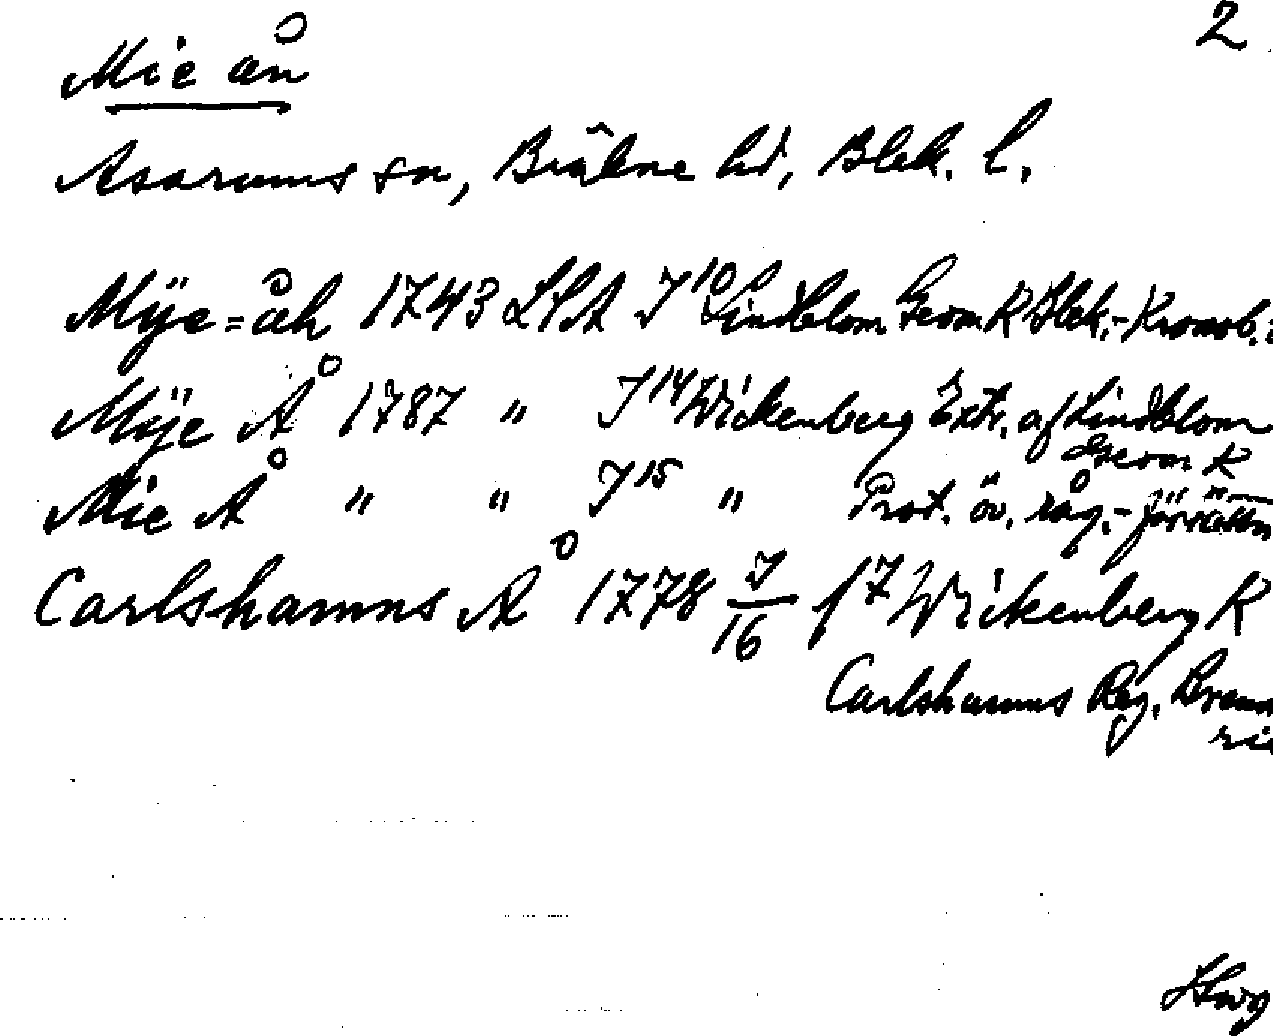 2
Mie ån
Asarums sn, Bräkne hd, Blek. l.
Mÿe=åh 1743 LSA J 10 Lindblom Geom K Blek.-Kronob.
Mÿe Å 1787 " J 14 Wickenberg Extr. af Lindblom
Geom K
Mie Å " " J 15 " Prot. öv. råg.-förrättn
Carlshamns Å 1778 J/16 f 7 Wickenberg K
Carlshamns Reg.